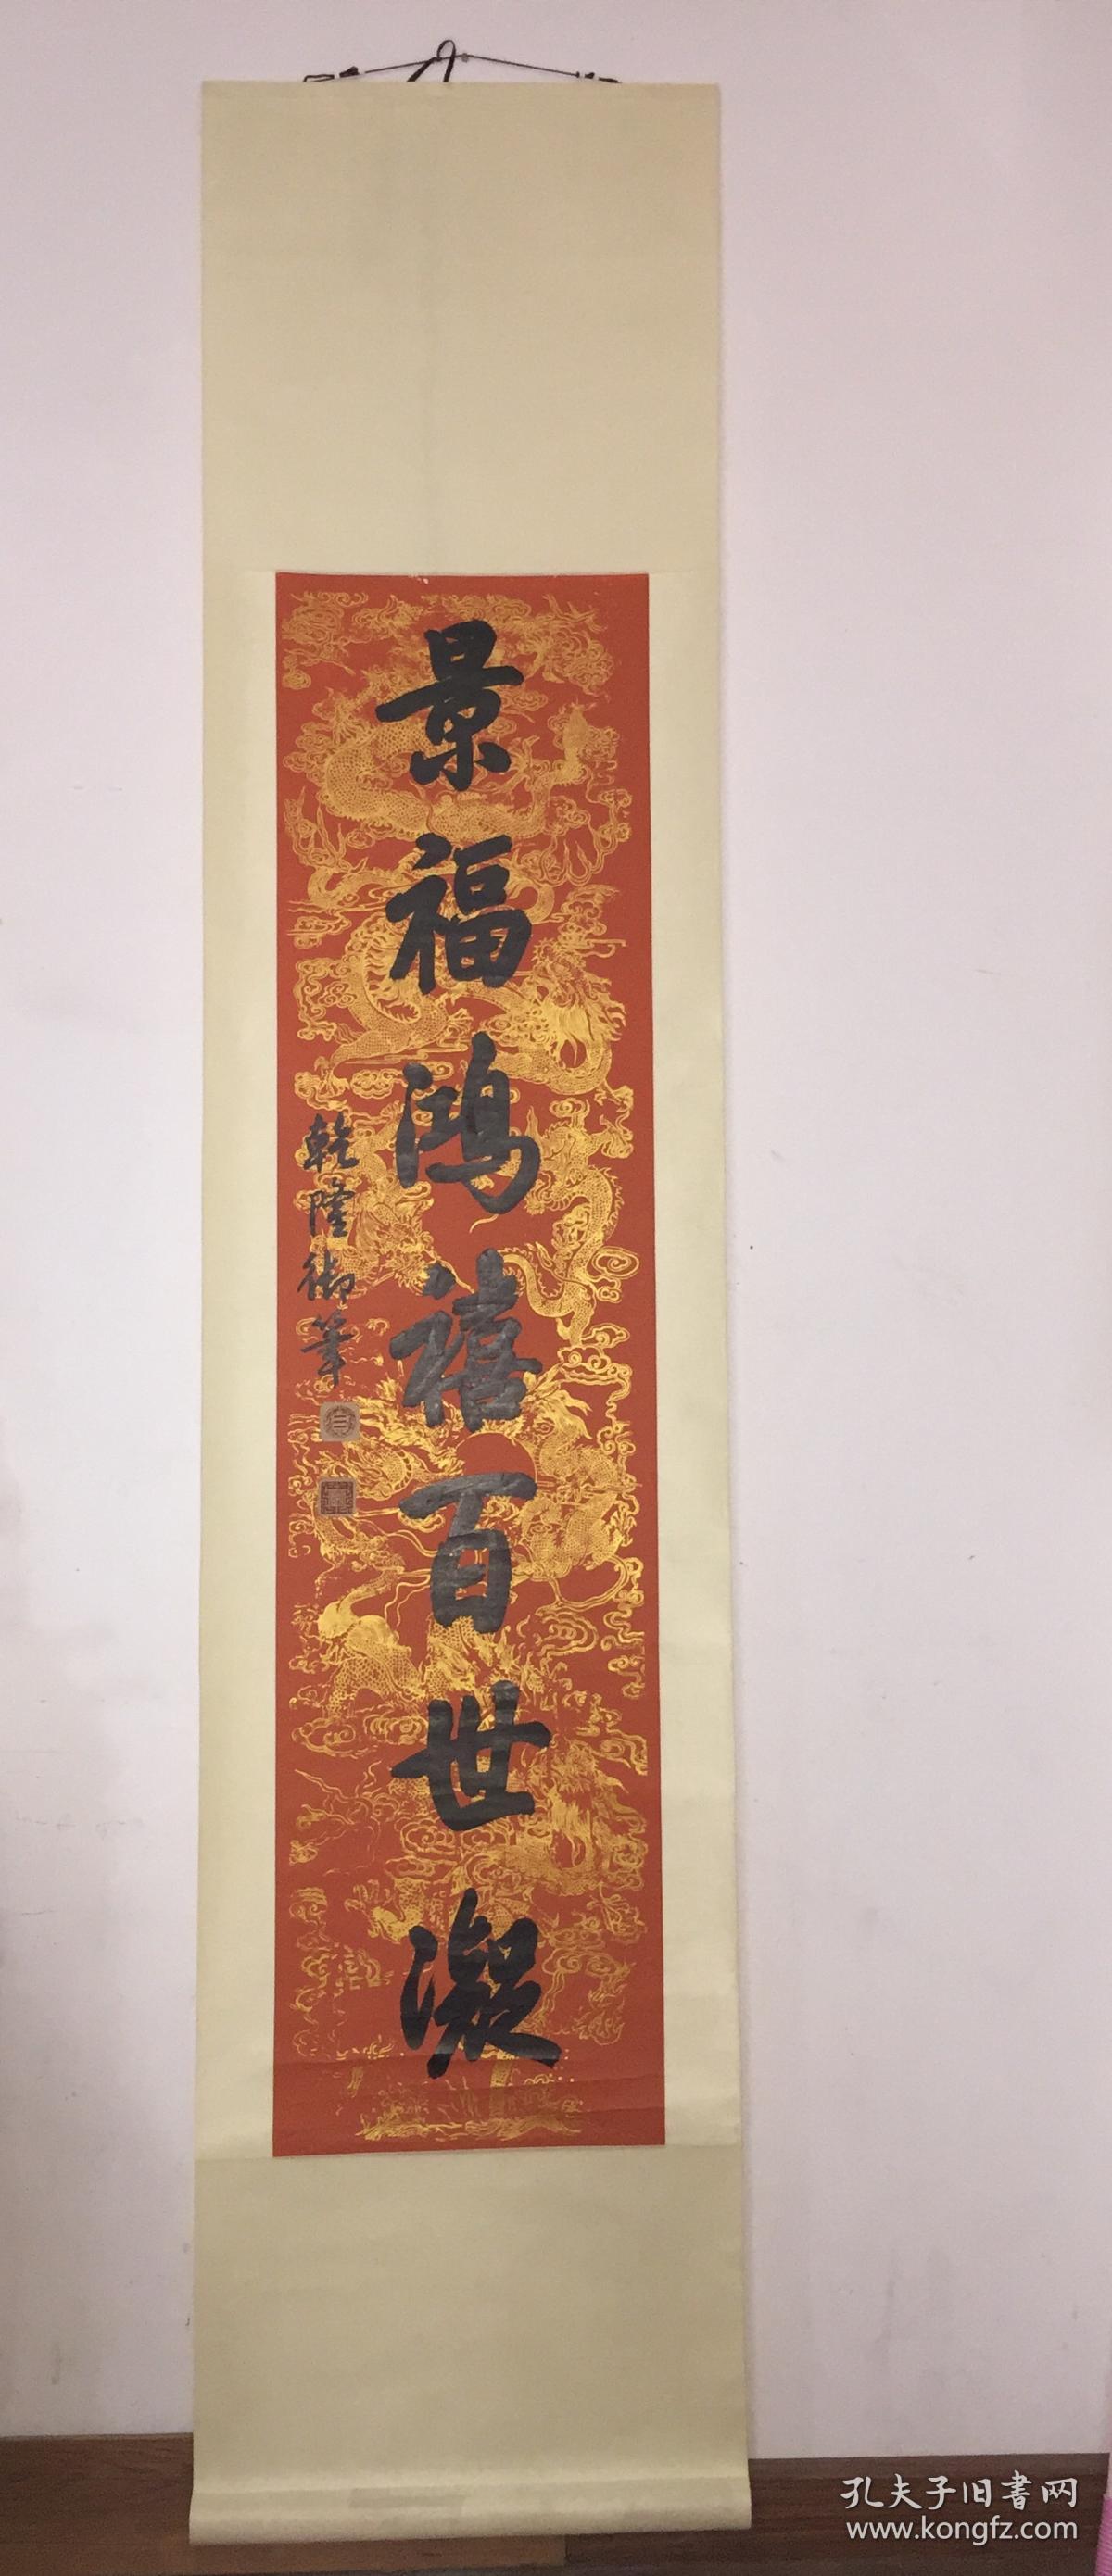 景福鸿禧百世凝
乾隆御筆
孔夫子旧书网
www.kongfz.com